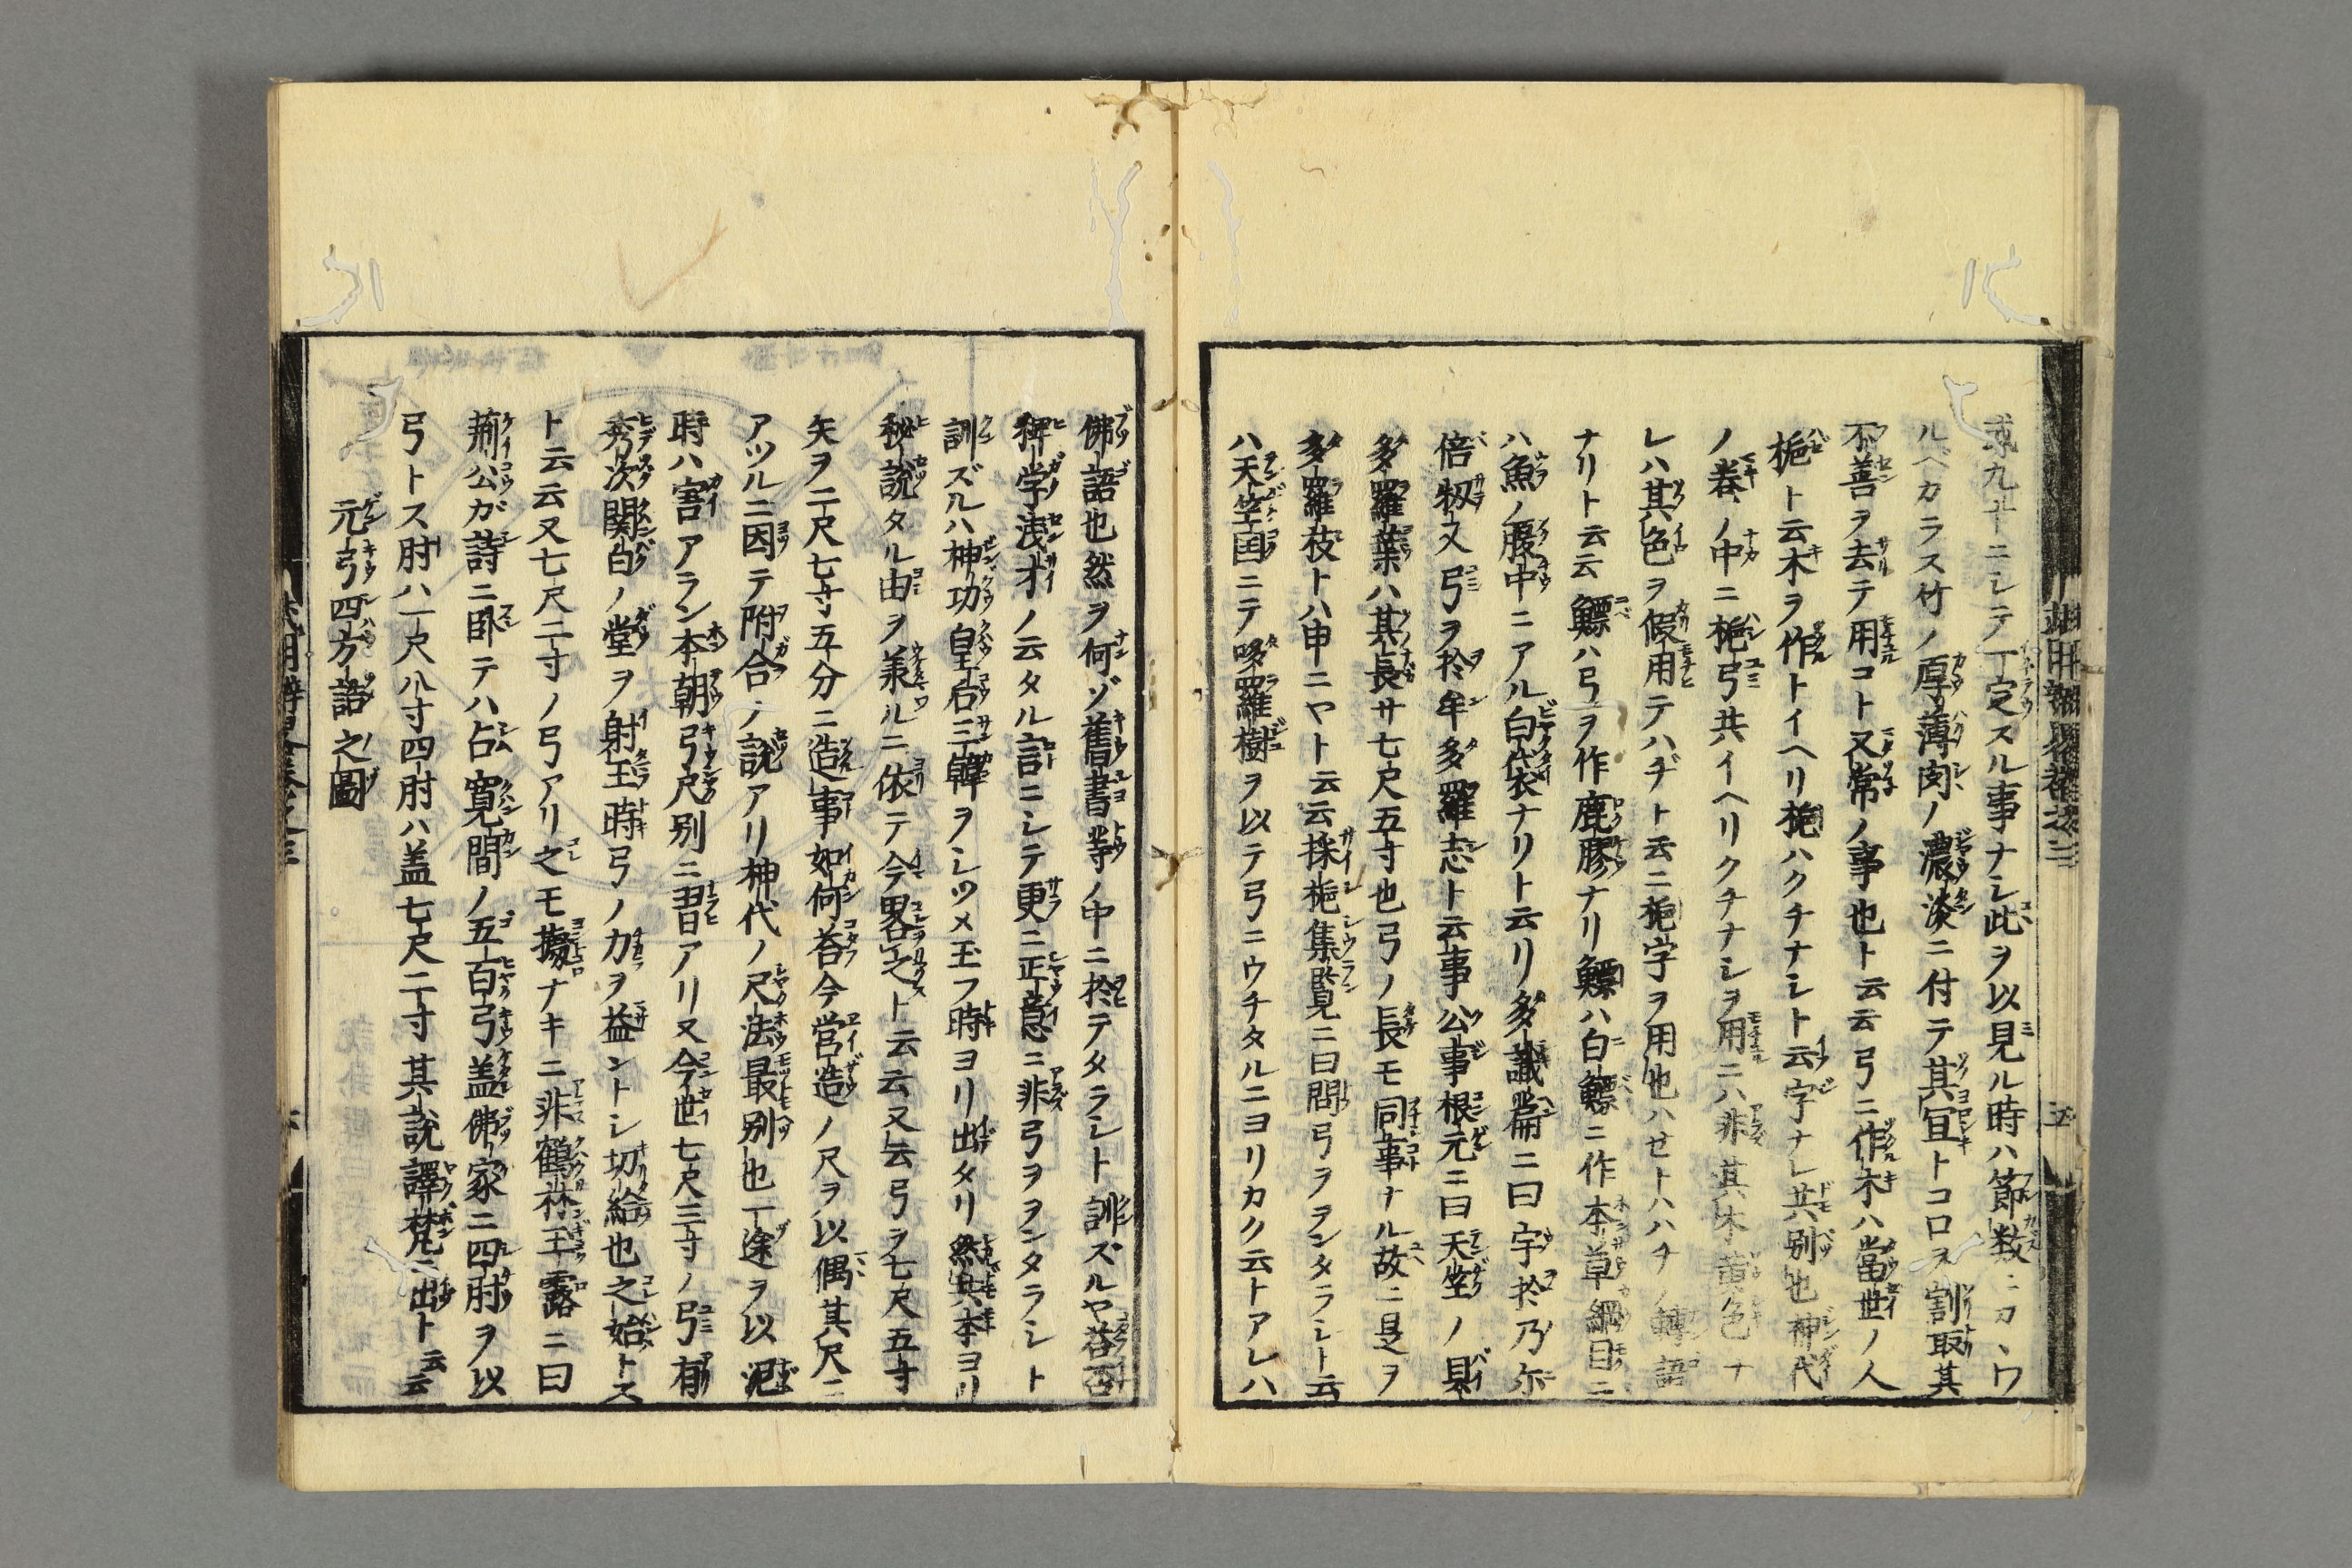 或九ナニシテ一定スル事ナシ此ヲ以見ル時ハ節数ニカヽワ
ルベカラス竹ノ厚薄肉ノ濃淡ニ付テ其宜トコロヲ割取其
不善ヲ去テ用コト又常ノ事也ト云云弓ニ作木ハ當世ノ人
梔ト云木ヲ作トイヘリ梔ハクチナシト云字ナレ共別也神代
ノ巻ノ中ニ梔弓共イヘリクチナシヲ用ニハ非其木黄色ナ
レハ其色ヲ假用テハヂト云ニ梔字ヲ用也ハセトハハチノ轉語
ナリト云云鰾ハ弓ヲ作鹿膠ナリ鰾ハ白鰾ニ作本草綱目ニ
ハ魚ノ腹中ニアル白袋ナリト云リ多識篇ニ曰宇於乃尓
倍扨又弓ヲ於牟多羅志ト云事公事根元ニ曰天竺ノ貝
多羅葉ハ其長サ七尺五寸也弓ノ長モ同事ナル故ニ是ヲ
多羅枝トハ申ニヤト云云採梔集覧ニ曰問弓ヲヲンタラシト云
ハ天竺国ニテ哆羅樹ヲ以テ弓ニウチタルニヨリカク云トアレハ
佛語也然ヲ何ゾ舊書等ノ中ニ於テタラシト訓ズルヤ答曰
稗学浅才ノ云タル言ニシテ更ニ正意ニ非弓ヲヲンタラシト
訓ズルハ神功皇后三韓ヲシツメ玉フ時ヨリ出タリ然共本ヨリ
秘説タル由ヲ兼ルニ依テ今畧之ト云云又云弓ヲ七尺五寸
矢ヲ二尺七寸五分ニ造事如何答今営造ノ尺ヲ以偶其尺ニ
アツルニ因テ附合ノ説アリ神代ノ尺法最別也一途ヲ以泥
時ハ害アラン本朝弓尺別ニ習アリ又今世七尺三寸ノ弓有
秀次関白ノ堂ヲ射玉時弓ノ力ヲ益ントシ切給也之始トス
ト云云又七尺二寸ノ弓アリ之モ據ナキニ非鶴林玉露ニ曰
荊公ガ詩ニ臥テハ占寛間ノ五百弓盖佛家ニ四肘ヲ以
弓トス肘ハ一尺八寸四肘ハ盖七尺二寸其説譯梵ニ出ト云云
元弓四方語之圖